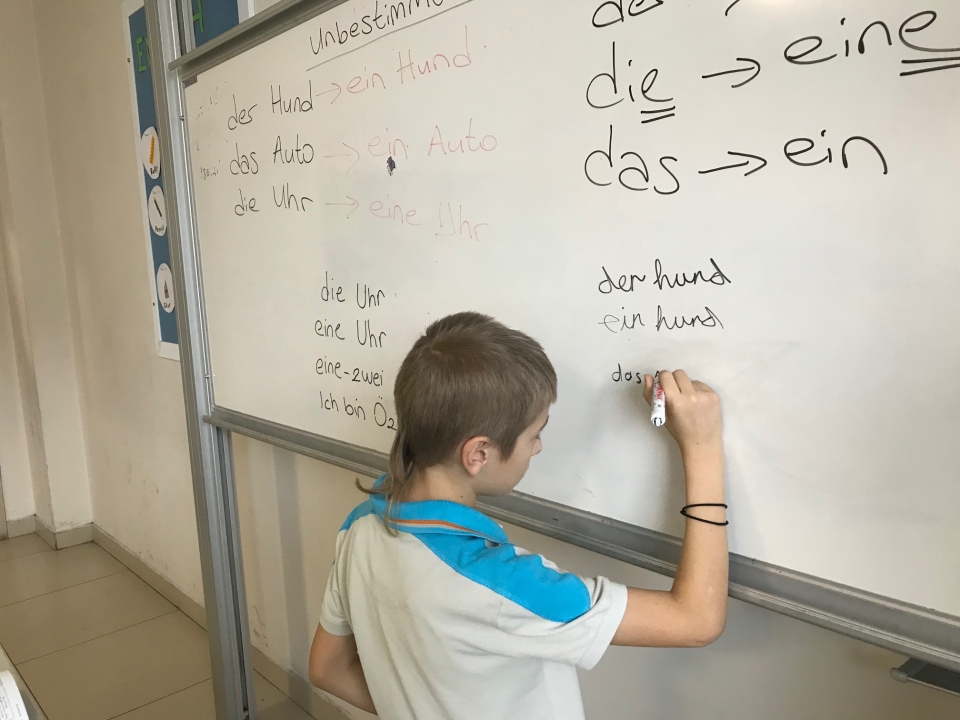 Unbestimm
der Hund → ein Hund
das Auto → ein Auto
die Uhr → eine Uhr
die Uhr
eine Uhr
eine-zwei
Ich bin Öz
die → eine
das → ein
der hund
ein hund
das